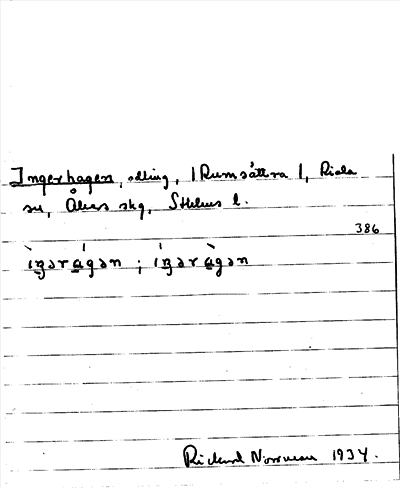 Ingerhagen, odling, (Rumsättra), Riala
sn, Åkers skg, Sthlms l.
386
ìŋərá̲gən ; íŋərà̲gən
Rickard Norrman 1934.